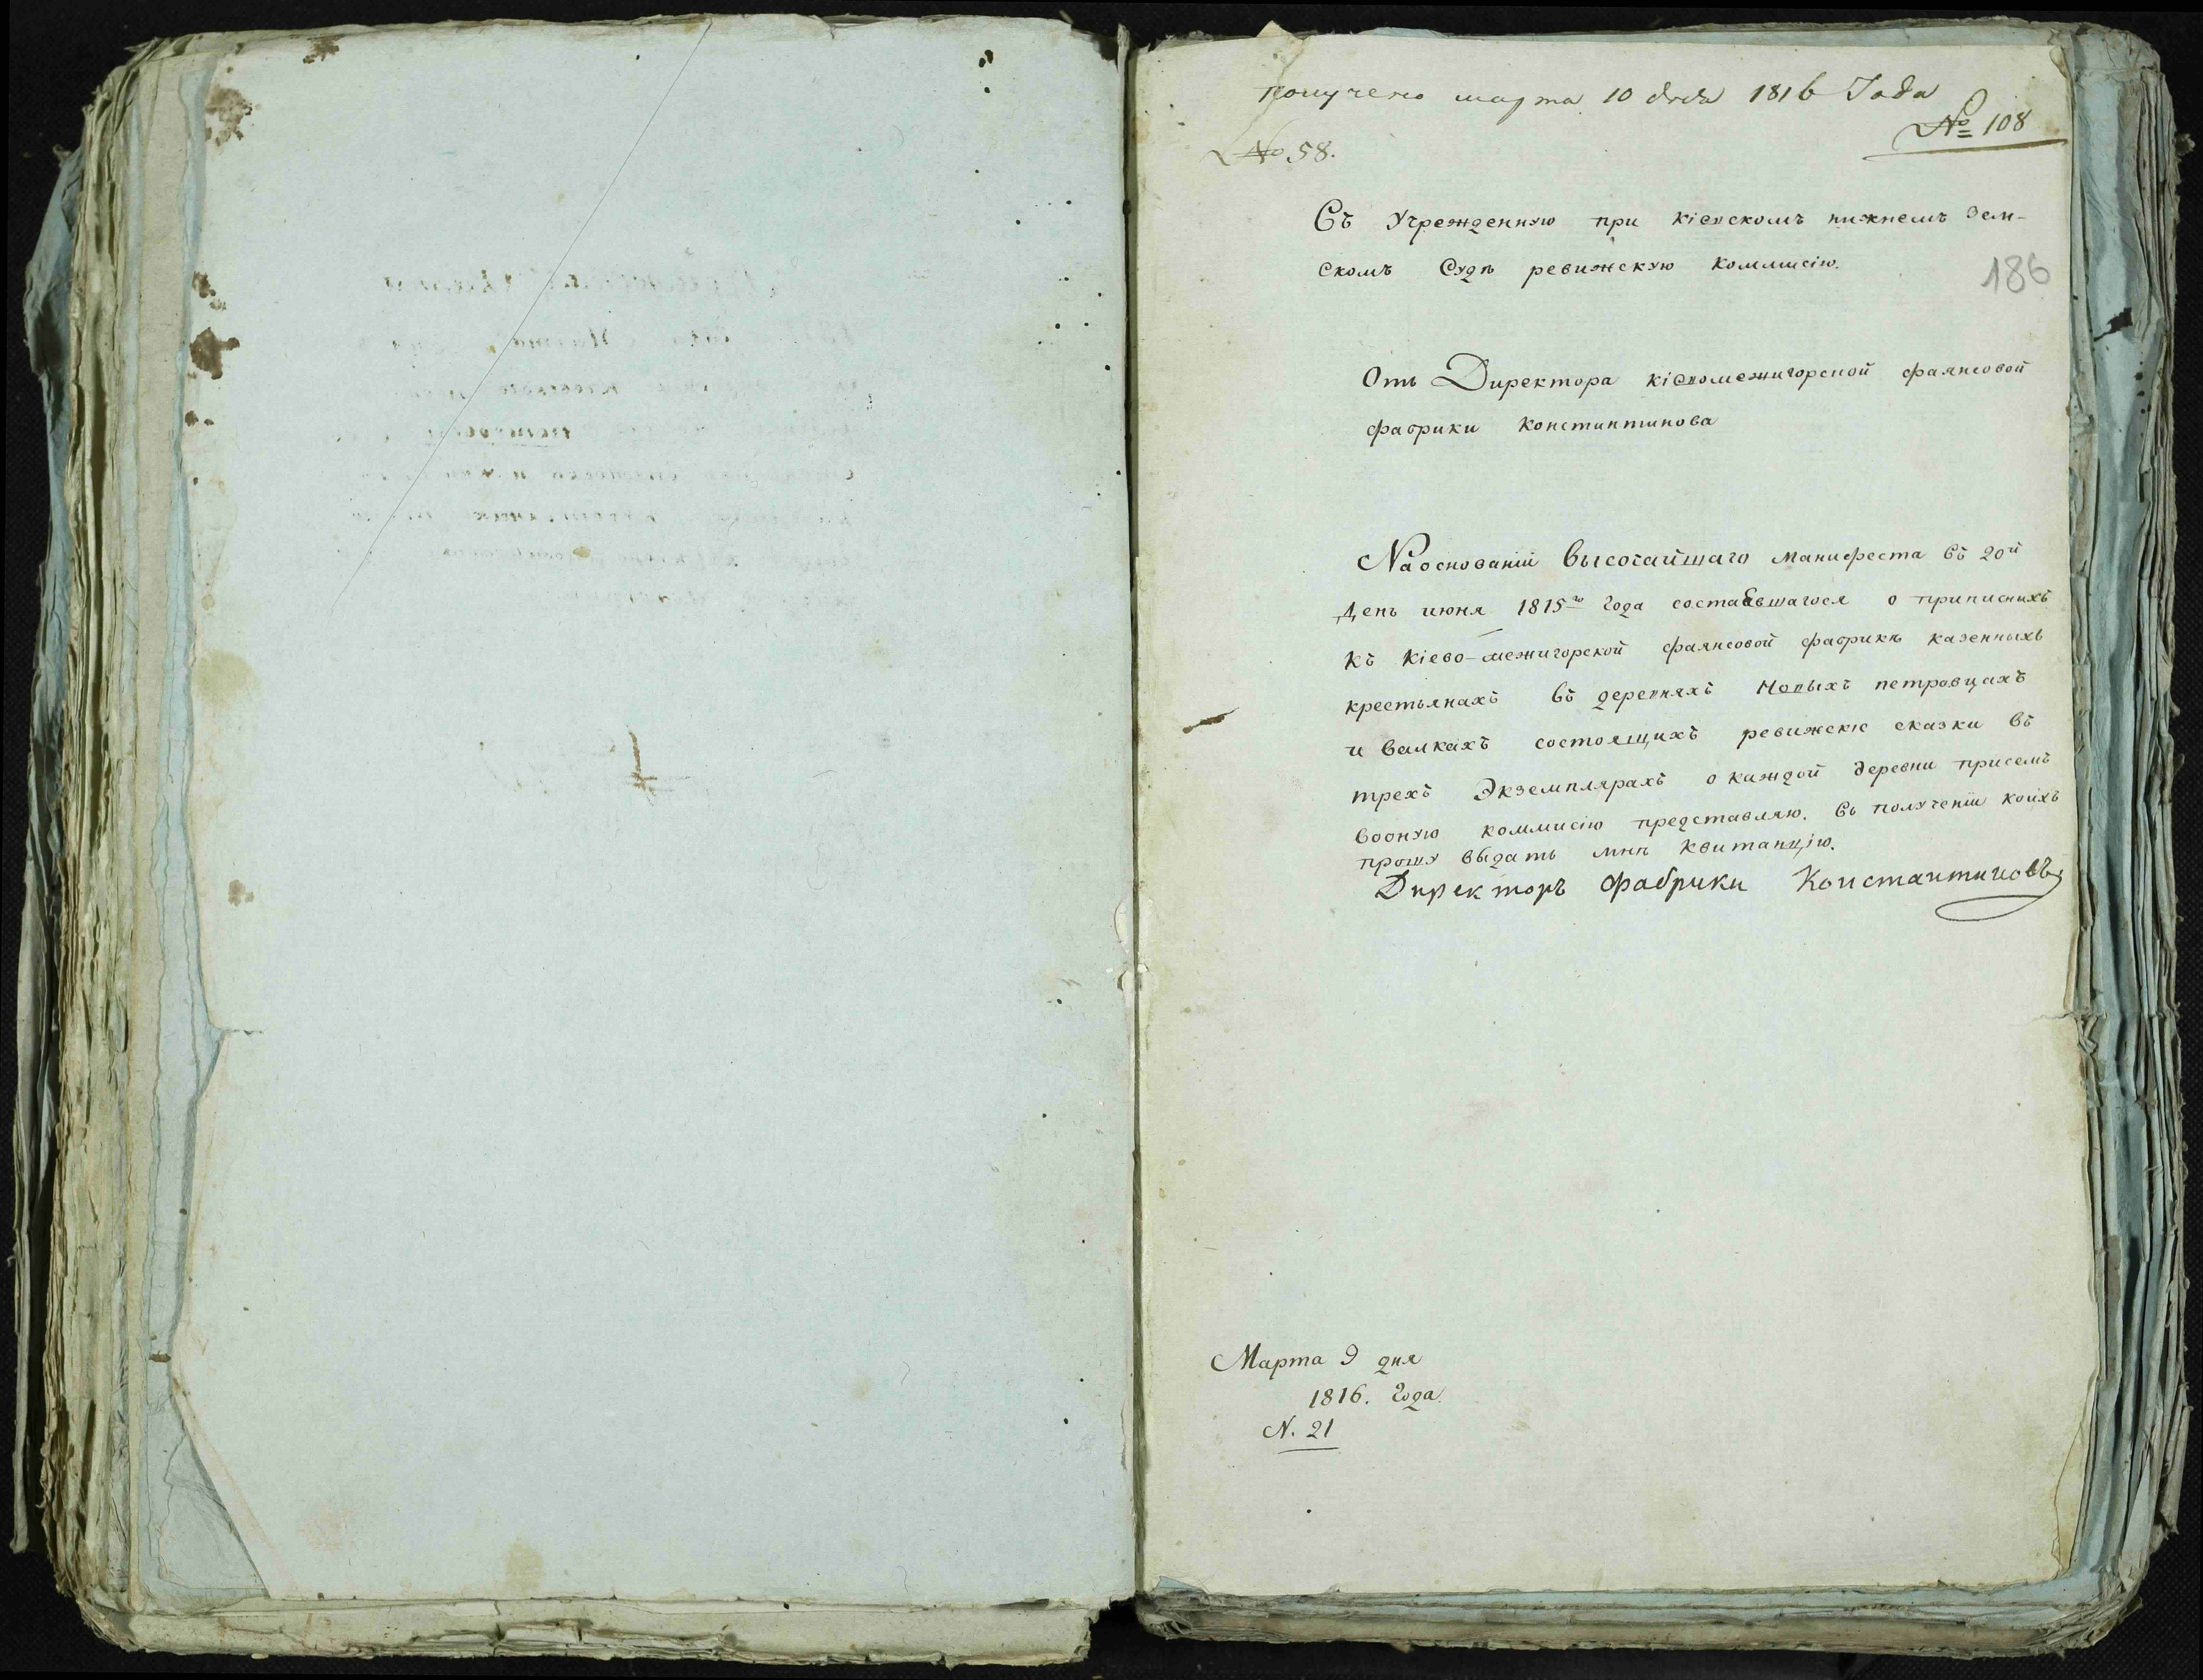 получено марта 10 дня 1816 Года
№ 108
№ 58.
Въ Учрежденную при кіевскомъ нижнемъ Зем-
Скомъ Судѣ ревижскую Коммисію.
186
Отъ Директора кіевомежигорской фаянсовой
фабрики Константинова
На основаніи Высочайшаго манифеста въ 20й
День июня 1815го года состаявшагося о приписныхъ
къ Кіево-межигорской фаянсовой фабрикѣ казенныхъ
крестьянахъ въ деревняхъ Новыхъ петровцахъ
и валкахъ состоящихъ ревижскіе сказки въ
трехъ Экземплярахъ о каждой деревни присемъ
вооную коммисію представляю. Въ полученіи коихъ
прошу выдать мнѣ квитанцію.
Директоръ фабрики Константиновъ
Марта 9 дня
1816. Года
N. 21